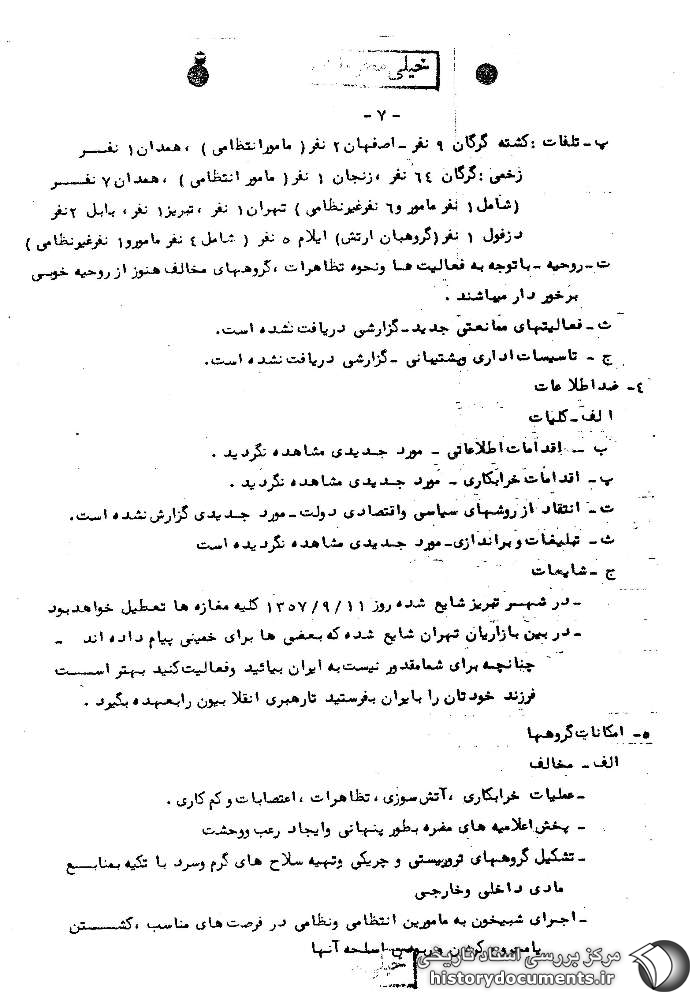 خیلی
- ۷ -
پ - تلفات : کشته گرگان ۹ نفر - اصفهان ۲ نفر ( مامور انتظامی ) ، همدان ۱ نفر
زخمی : گرگان ٦٤ نفر ، زنجان ۱ نفر ( مامور انتظامی ) ، همدان ۷ نفر
( شامل ۱ نفر مامور و ٦ نفر غیر نظامی ) تهران ۱ نفر ، تبریز ۱ نفر ، بابل ۲ نفر
دزفول ۱ نفر ( گروهبان ارتش ) ایلام ۵ نفر ( شامل ٤ نفر مامور و ۱ نفر غیرنظامی )
ت - روحیه - با توجه به فعالیت ها ونحوه تظاهرات ، گروههای مخالف هنوز از روحیه خوبی
برخور دار میباشند .
ث - فعالیتهای ممانعتی جدید - گزارشی دریافت نشده است.
ج - تاسیسات اداری وپشتیبانی - گزارشی دریافت نشده است.
٤- ضد اطلاعات
الف - کلیات
ب - اقدامات اطلاعاتی - مورد جدیدی مشاهده نگردید .
پ - اقدامات خرابکاری - مورد جدیدی مشاهده نگردید .
ت - انتقاد از روشهای سیاسی واقتصادی دولت - مورد جدیدی گزارش نشده است.
ث - تبلیغات و براندازی - مورد جدیدی مشاهده نگردیده است
ج - شایعات
- در شهر تبریز شایع شده روز ۱۳۵۷/۹/۱۱ کلیه مغازه ها تعطیل خواهد بود
- در بین بازاریان تهران شایع شده که بعضی ها برای خمینی پیام داده اند -
چنانچه برای شما مقدور نیست به ایران بیائید وفعالیت کنید بهتر است
فرزند خودتان را بایران بفرستید تا رهبری انقلابیون را بعهده بگیرد .
۵- امکانات گروهها
الف - مخالف
- عملیات خرابکاری ، آتش سوزی ، تظاهرات ، اعتصابات و کم کاری .
- پخش اعلامیه های مضره بطور پنهانی وایجاد رعب ووحشت
- تشکیل گروههای تروریستی و چریکی وتهیه سلاح های گرم وسرد با تکیه بمنابع
مادی داخلی وخارجی
- اجرای شبیخون به مامورین انتظامی ونظامی در فرصت های مناسب ، کشتن
یا مجروح کردن اسلحه آنها
خیلی
مرکز بررسی اسناد تاریخی
historydocuments.ir